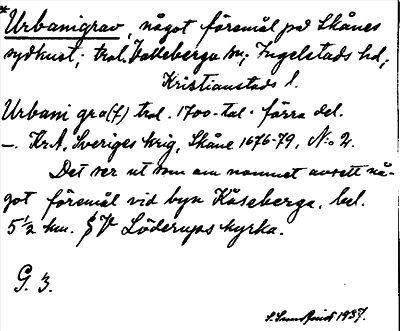 *Urbanigrav, något föremål på Skånes
sydkust; trol. Valleberga sn; Ingelstads hd,
Kristianstads l.
Urbani gra(f) trol. 1700-tal. förra del.
–. Kr.A, Sveriges krig, Skåne 1676-79, N:o 2.
Det ser ut som om namnet avsett nå-
got föremål vid byn Kåseberga, bel.
5 ½ km. SV Löderups kyrka.
G. 3.
1937.